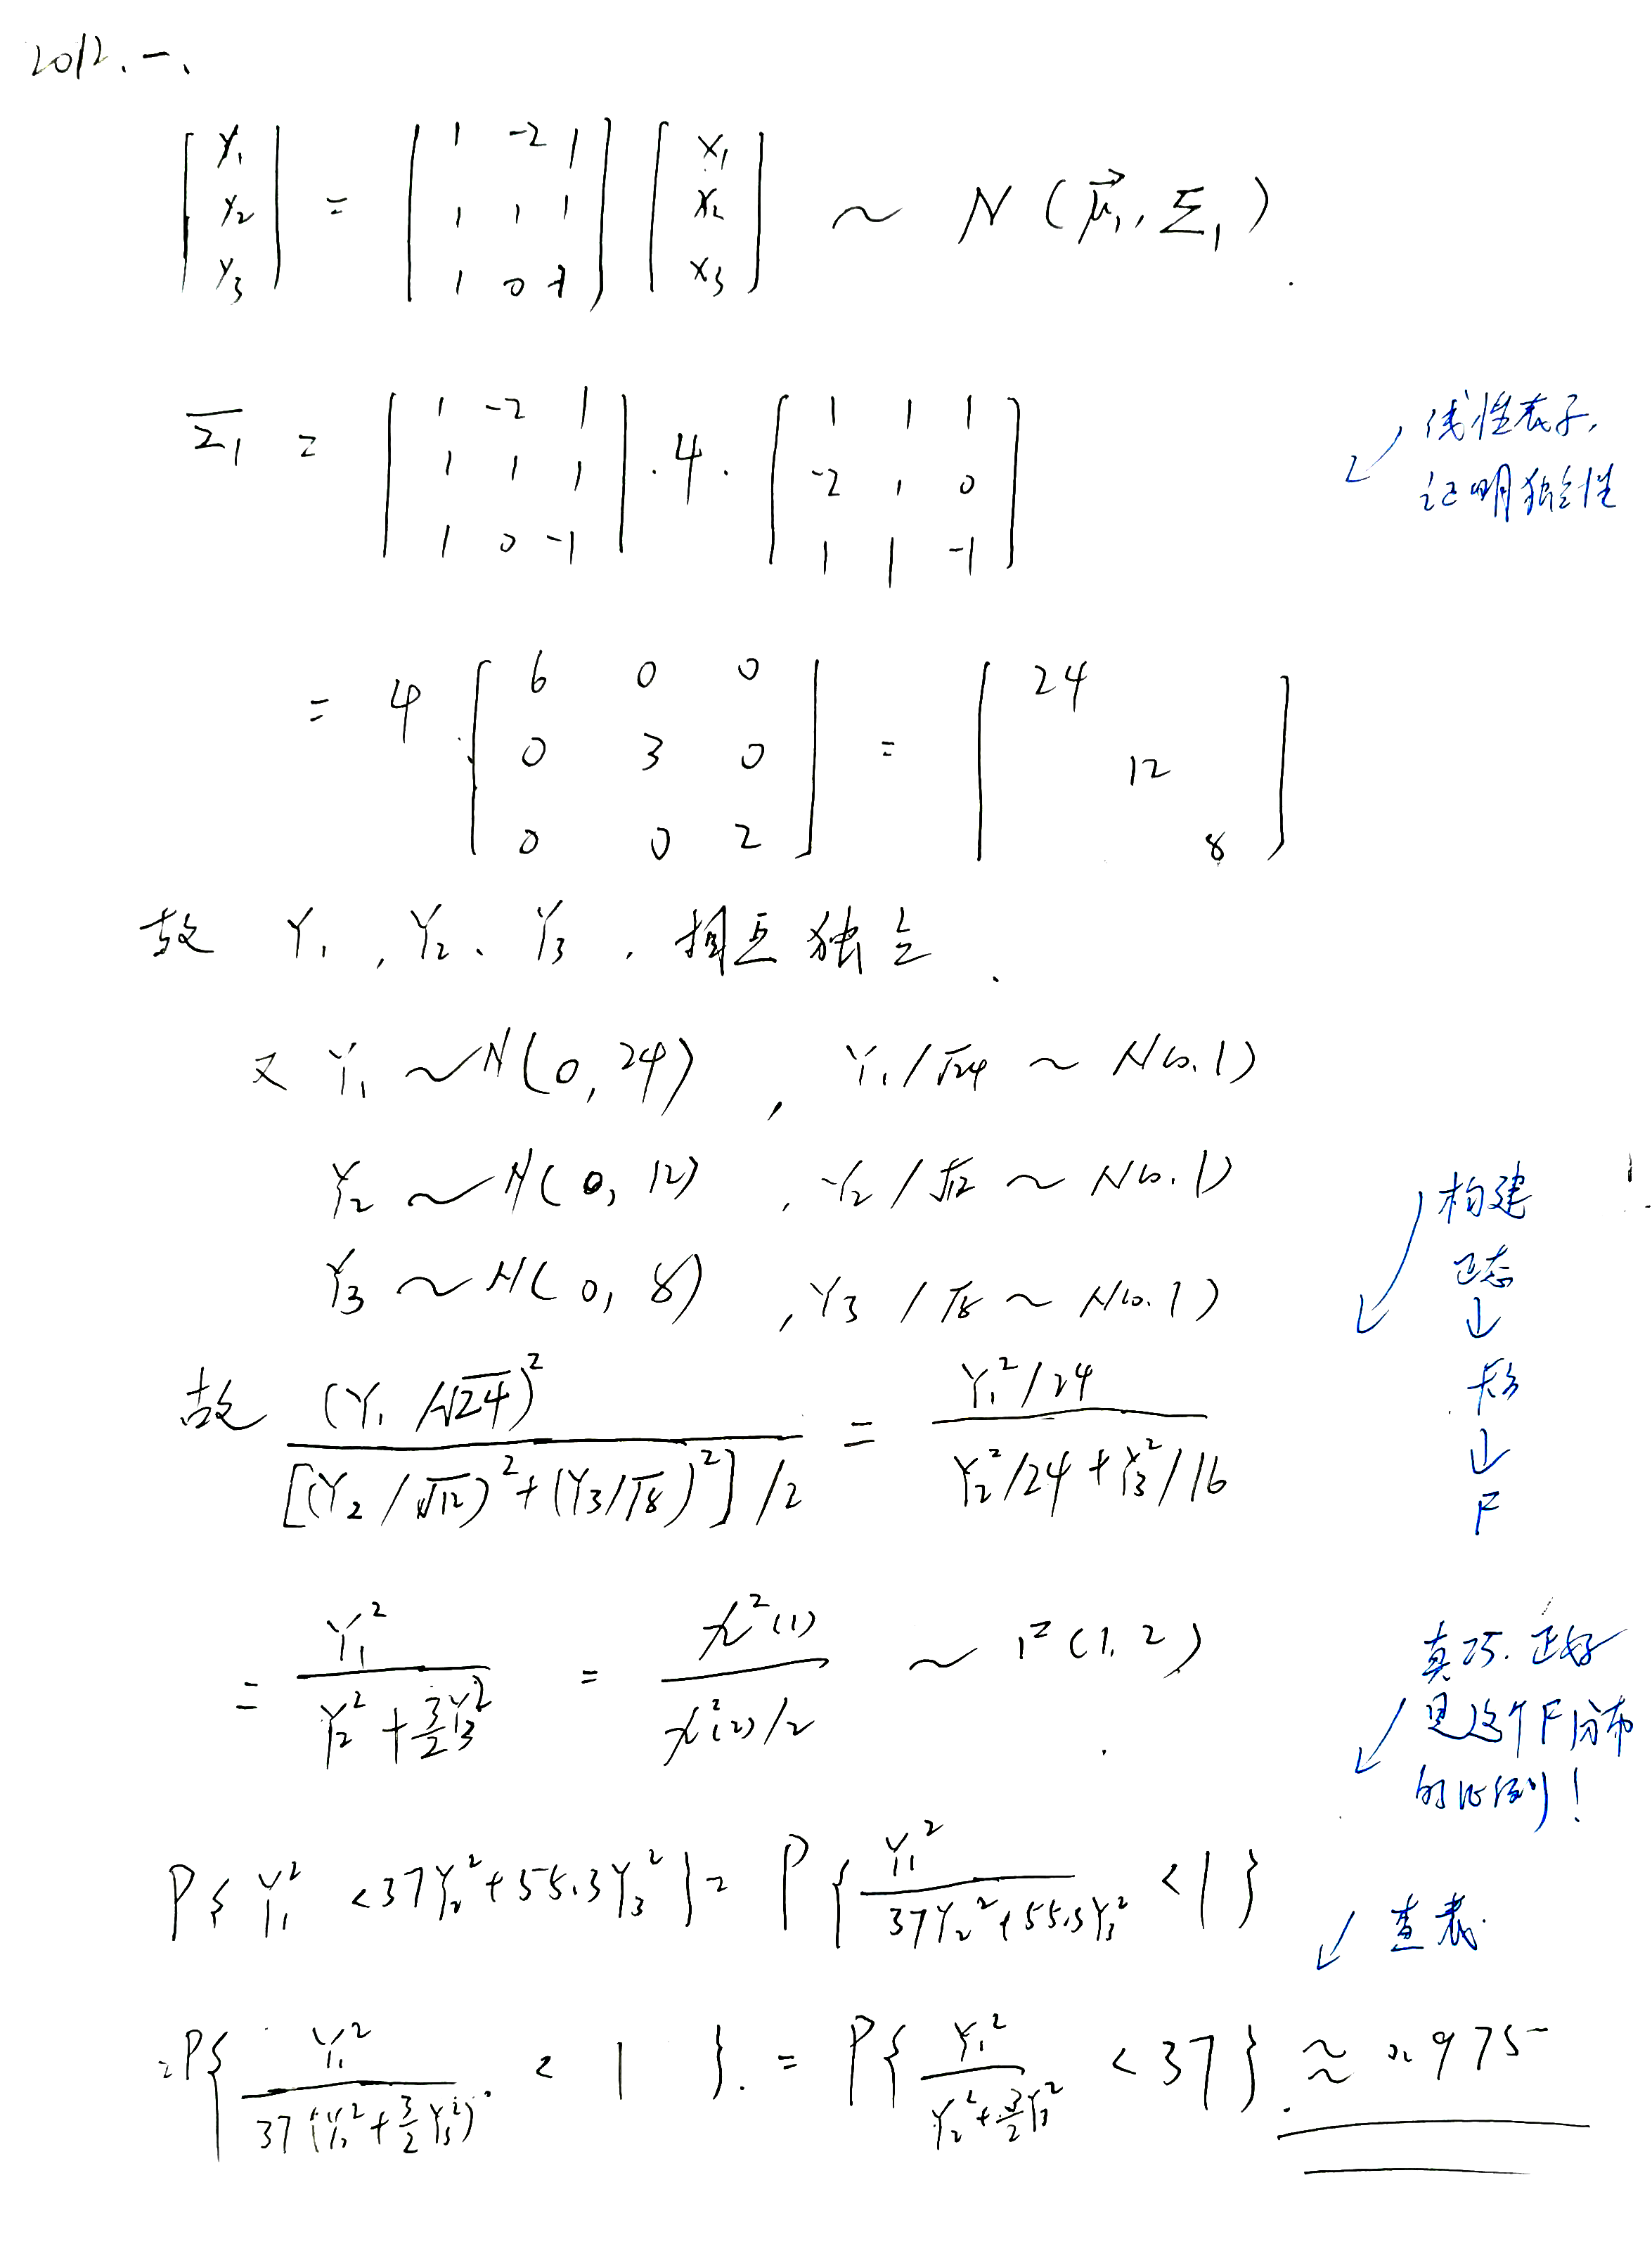 2012.一、
[Y₁ Y₂ Y₃] = [1 -2 1; 1 1 1; 1 0 -1] [X₁ X₂ X₃] ~ N(μ⃗₁, Σ₁).
Σ₁ = [1 -2 1; 1 1 1; 1 0 -1] · 4 · [1 1 1; -2 1 0; 1 1 -1]
线性表示,
证明独立性
= 4 [6 0 0; 0 3 0; 0 0 2] = [24 12 8]
故 Y₁, Y₂、Y₃, 相互独立.
又 Y₁ ~ N(0, 24), Y₁/√24 ~ N(0.1)
Y₂ ~ N(0, 12), Y₂/√12 ~ N(0.1)
Y₃ ~ N(0, 8), Y₃/√8 ~ N(0.1)
构建
正态
↓
卡方
↓
F
故 (Y₁/√24)² / {[(Y₂/√12)² + (Y₃/√8)²]/2} = (Y₁²/24) / (Y₂²/24 + Y₃²/16)
= Y₁² / (Y₂² + 3/2 Y₃²) = χ²(1) / (χ²(2)/2) ~ F(1, 2).
真巧. 正好
是这个F分布
的比例!
P{Y₁² < 37Y₂² + 55.3Y₃²} = P{Y₁² / (37Y₂² + 55.3Y₃²) < 1}
查表.
= P{Y₁² / 37(Y₂² + 3/2 Y₃²) < 1}. = P{Y₁² / (Y₂² + 3/2 Y₃²) < 37} ≈ 0.975